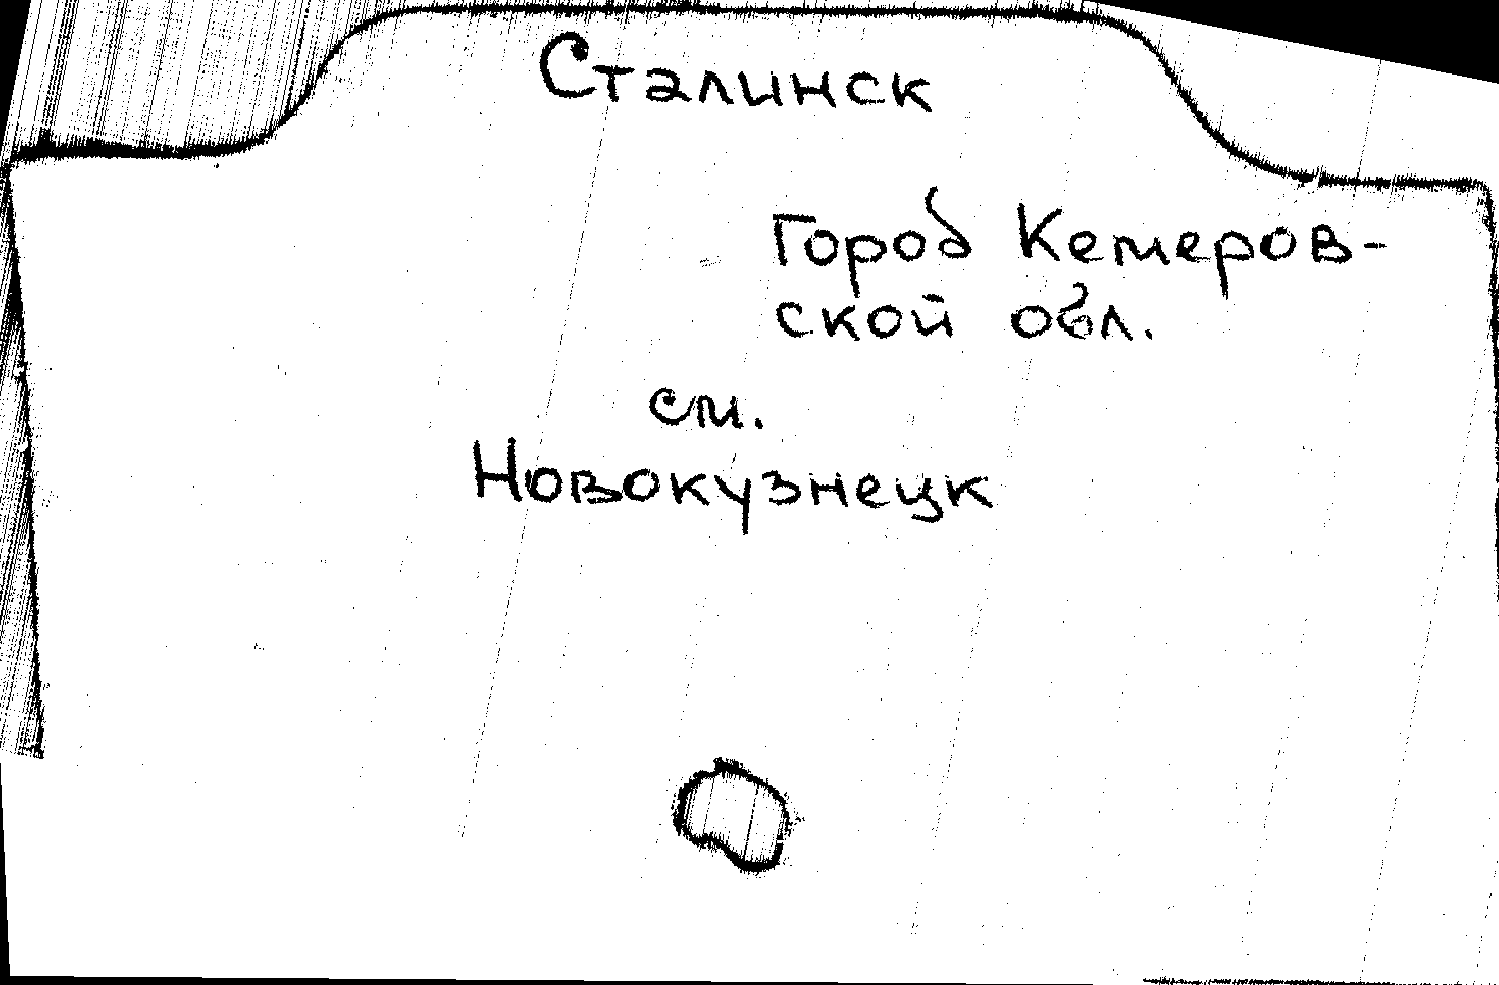 Сталинск
Город Кемеров-
ской обл.
см.
Новокузнецк